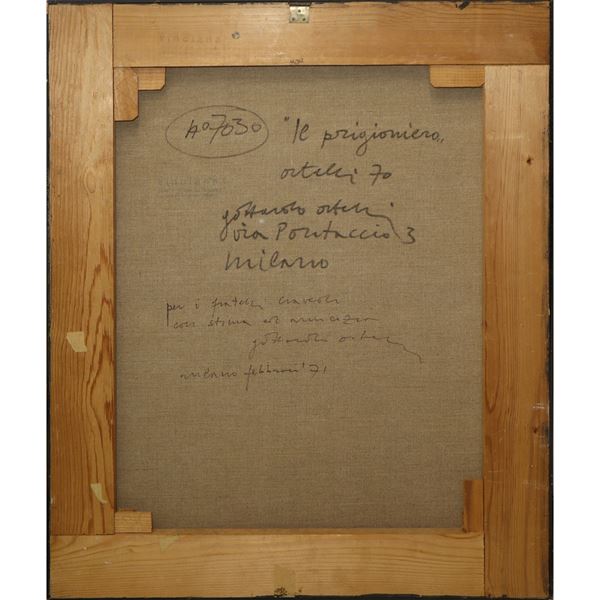 n° 7030
"Il prigioniero"
ortelli 70
gottardo ortelli
via Pontaccio 3
milano
per i fratelli
con stima ed amicizia
gottardo ortelli
milano febbraio '71